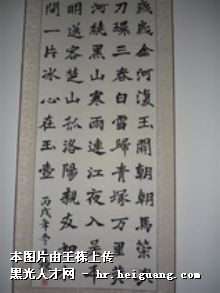 歲歲金河復玉關朝朝馬策與
刀環三春白雪歸青塚萬里黃
河繞黑山寒雨連江夜入吳平
明送客楚山孤洛陽親友如相
問一片冰心在玉壺
丙戌年冬
本图片由王栋上传
黑光人才网 - hr.heiguang.com